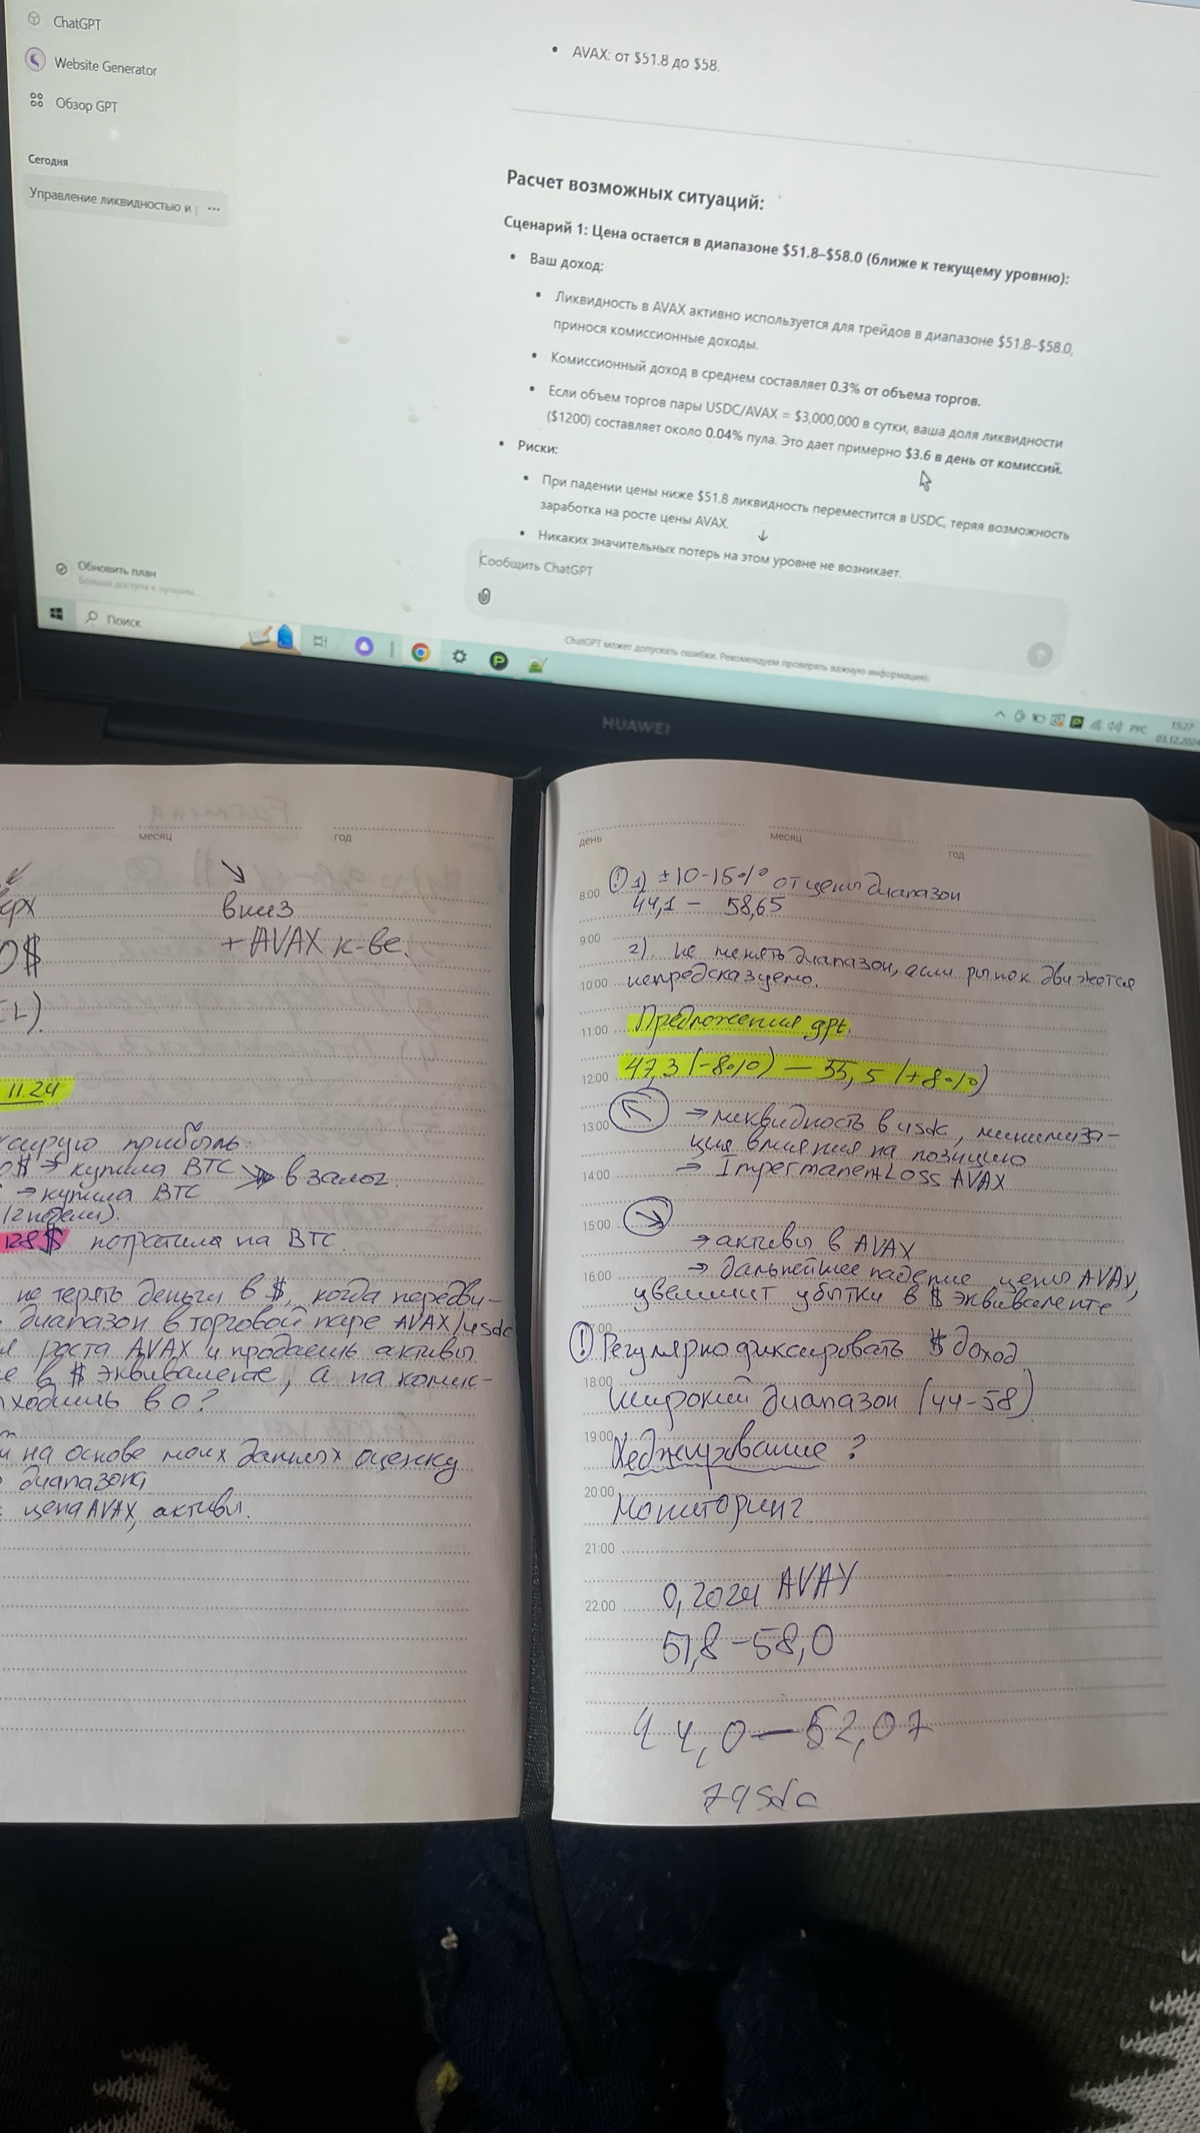 ChatGPT
Website Generator
Обзор GPT
Сегодня
Управление ликвидностью и
AVAX: от $51.8 до $58.
Расчет возможных ситуаций:
Сценарий 1: Цена остается в диапазоне $51.8–$58.0 (ближе к текущему уровню):
Ваш доход:
Ликвидность в AVAX активно используется для трейдов в диапазоне $51.8–$58.0,
принося комиссионные доходы.
Комиссионный доход в среднем составляет 0.3% от объема торгов.
Если объем торгов пары USDC/AVAX = $3,000,000 в сутки, ваша доля ликвидности
($1200) составляет около 0.04% пула. Это дает примерно $3.6 в день от комиссий.
Риски:
При падении цены ниже $51.8 ликвидность переместится в USDC, теряя возможность
заработка на росте цены AVAX.
Никаких значительных потерь на этом уровне не возникает.
Сообщить ChatGPT
Обновить план
ChatGPT может допускать ошибки. Рекомендуем проверять важную информацию.
Поиск
РУС
15:27
03.12.2024
HUAWEI
месяц год
вниз
0$ + AVAX к-ве.
11.24
прибыль
0$ → купила BTC в залог.
→ купила BTC
(2 недели).
128$ потратила на BTC.
не терять деньги в $, когда передви-
диапазон в торговой паре AVAX/usdc
роста AVAX и продаешь активы
в $ эквиваленте, а на комис-
в 0?
на основе моих данных оценку
диапазона
цена AVAX, активы.
день месяц год
8:00 ! 1) ±10-15% от цены диапазон
44,1 – 58,65
9:00 2). не менять диапазон, если рынок движется
10:00 непредсказуемо.
11:00 Предложения gpt.
12:00 47,3 (-8%) – 55,5 (+8%)
13:00 → ликвидность в usdc, минимиза-
ция влияния на позицию
14:00 → Impermanent Loss AVAX
15:00
→ активы в AVAX
16:00 → дальнейшее падение цены AVAX,
увеличит убытки в $ эквиваленте
17:00 ! Регулярно фиксировать $ доход
18:00 Широкий диапазон (44-58)
19:00 Хеджирование ?
20:00 Мониторинг
21:00
22:00 AVAX
51,8 – 58,0
44,0 – 52,07